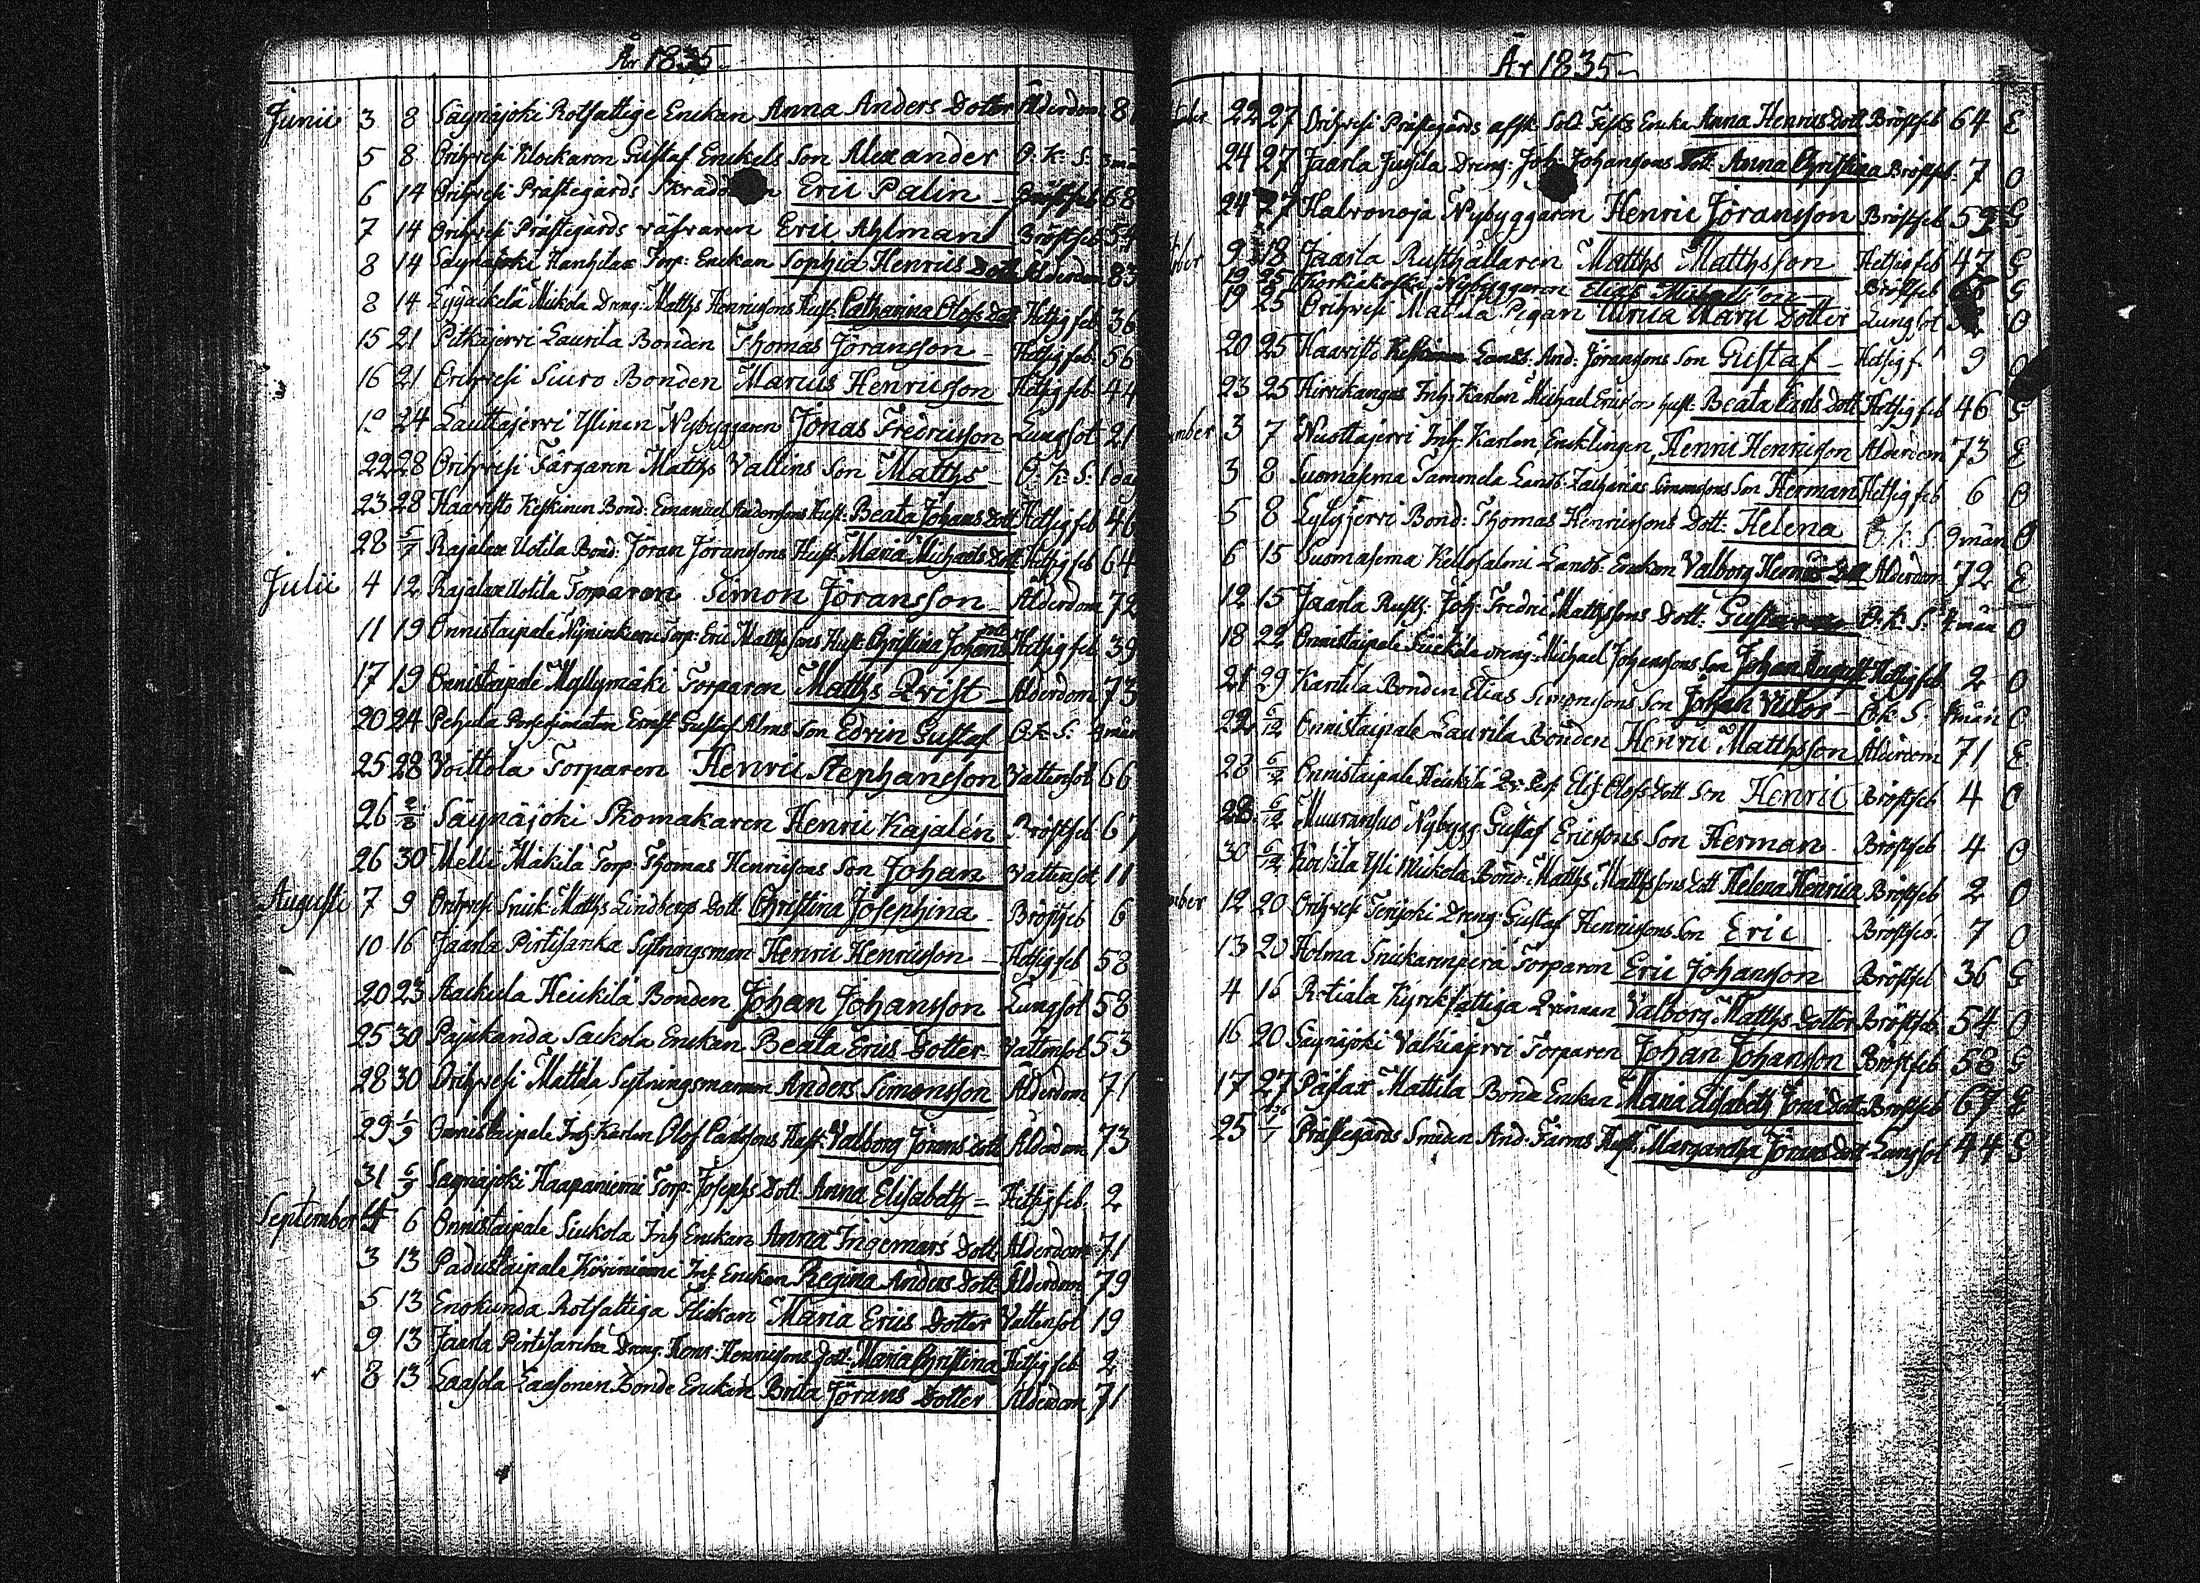 År 1835
Junii 3 8 Säynäjoki Rotfattige Enckan Anna Anders Dotter Ålderdom 81
5 8 Orihvesi Klockaren Gustaf Enckels Son Alexander O. K. S. 3 mån
6 14 Orihvesi Prästegårds Eric Palin Bröstfeb 68
7 14 Orihvesi Prästegårds väfvaren Eric Ahlman Bröstfeb 54
8 14 Säynäjoki Torp: Enckan Sophia Henrics Dott Ålderdom 83
8 14 Mickola Dreng: Matths Henricsons Hust: Catharina Olofs Dott Hetsig feb 36
15 21 Pitkäjerri Laurila Bonden Thomas Jöransson Hetsig feb: 56
16 21 Orihvesi Siuro Bonden Marcus Henricsson Hetsig feb: 44
24 Lauttajerri Ylinen Nybyggaren Jonas Fredricsson Lungsot 21
22 28 Orihvesi Färgaren Matths Vallins Son Matths O. K. S. 1 dag
23 28 Haavisto Keskinen Bond: Emanuel Anderssons Hust: Beata Johans Dott Hetsig feb 46
28 5/7 Rajalax Uotila Bond: Jöran Jöranssons Hust: Maria Michaels Dott Hetsig feb 64
Julii 4 12 Rajalax Uotila Torparen Simon Jöransson Ålderdom 72
11 19 Onnistaipale Torp: Eric Matthssons Hust: Christina Johans Dott Hetsig feb 39
17 19 Onnistaipale Myllymäki Torparen Matths Qvist Ålderdom 73
20 24 Pehula Ernst Gustaf Alms Son Edvin Gustaf O. K. S: mån
25 28 Voittola Torparen Henric Stephansson Vattensot 66
26 2/8 Säynäjoki Skomakaren Henric Kajalén Bröstfeb 67
26 30 Melli Mäkilä Torp: Thomas Henricsons Son Johan Vattensot 11
Augusti 7 9 Orihvesi Snick: Matths Lindbergs Dott Christina Josephina Bröstfeb 6
10 16 Jaarla Pirtisarka Sytningsman Henric Henricsson Hetsig feb 58
20 23 Heickilä Bonden Johan Johansson Lungsot 58
25 30 Pajukanda Sackola Enckan Beata Erics Dotter Vattensot 53
28 30 Orihvesi Mattila Sytningsmannen Anders Simonsson Ålderdom 71
29 1/9 Onnistaipale Inh: Karlen Olof Carlssons Hust: Valborg Jörans Dott Ålderdom 73
31 6/9 Säynäjoki Haapaniemi Torp: Josephs Dott: Anna Elisabeth Hetsig feb. 2
September 4 6 Onnistaipale Sickola Inh Enckan Anna Ingemars Dott Ålderdom 71
3 13 Padustaipale Inh: Enckan Regina Anders Dott Ålderdom 79
5 13 Enokunda Rotfattiga Flickan Maria Erics Dotter Vattensot 19
9 13 Jaarla Pirtisarka Dreng: Henr: Henricssons Dott: Maria Christina Hetsig feb 2
8 13 Laasola Laasonen Bonde Enckan Brita Jörans Dotter Ålderdom 71
År 1835
22 27 Orihvesi Prästegårds afsk Sold Encka Anna Henrics Dott Bröstfeb 64 E
24 27 Jaarla Dreng: Joh: Johanssons Dott: Anna Christina Bröstfeb. 7 O
24 27 Nybyggaren Henric Jöransson Bröstfeb 59 G
9 18 Jaarla Rusthållaren Matths Matthsson Hetsig feb 47 G
19 25 Nybyggaren Elias Michaelsson Bröstfeb G
19 25 Orihvesi Mattila Pigan Ulrica Maria Dotter Lungsot O
20 25 Haavisto And: Jöranssons Son Gustaf Hetsig f. 9 O
23 25 Hirvikangas Inh: Karlen Michael Ericssons hust: Beata Carls Dott Hetsig feb 46 G
3 7 Nuottajerri Inh: Karlen, Encklingen, Henric Henricsson Ålderdom 73 E
3 8 Suomasema Tammela Landb. Zacharias Simonssons Son Herman Hetsig feb 6 O
5 8 Lylyjerri Bond: Thomas Henricssons Dott: Helena O. K. S. 9 mån O
6 15 Suomasema Kellosalmi Landb: Enckan Valborg Henrics Dott Ålderdom 72 E
12 15 Jaarla Rusth: Joh: Fredric Matthssons Dott: O. K. S. mån O
18 22 Onnistaipale Dreng: Michael Johanssons Son Johan August Hetsig feb 2 O
21 29 Karttila Bonden Elias Simonssons Son Johan Victor O. K. S. mån O
22 6/12 Onnistaipale Laurila Bonden Henric Matthsson Ålderdom 71 E
28 6/12 Onnistaipale Heickilä Elis: Olofs Dott Son Henric Bröstfeb 4 O
28 6/12 Muuransuo Nybygg: Gustaf Ericssons Son Herman Bröstfeb 4 O
30 6/12 Yli Mickola Bond: Matths Matthssons Dott Helena Henrica Bröstfeb 2 O
12 20 Orihvesi Dreng: Gustaf Henricssons Son Eric Bröstfeb. 7 O
13 20 Holma Torparen Eric Johansson Bröstfeb 36 G
4 16 Kyrkfattiga Qvinnan Valborg Matths Dotter Bröstfeb. 54 O
16 20 Säynäjoki Valkiajerri Torparen Johan Johansson Bröstfeb 58 G
17 27 Mattila Bond Enckan Maria Elisabeth Jona Dott Bröstfeb 67 E
25 Prästegårds Smeden And: Hust: Margaretha Jörans Dott Lungsot 44 G